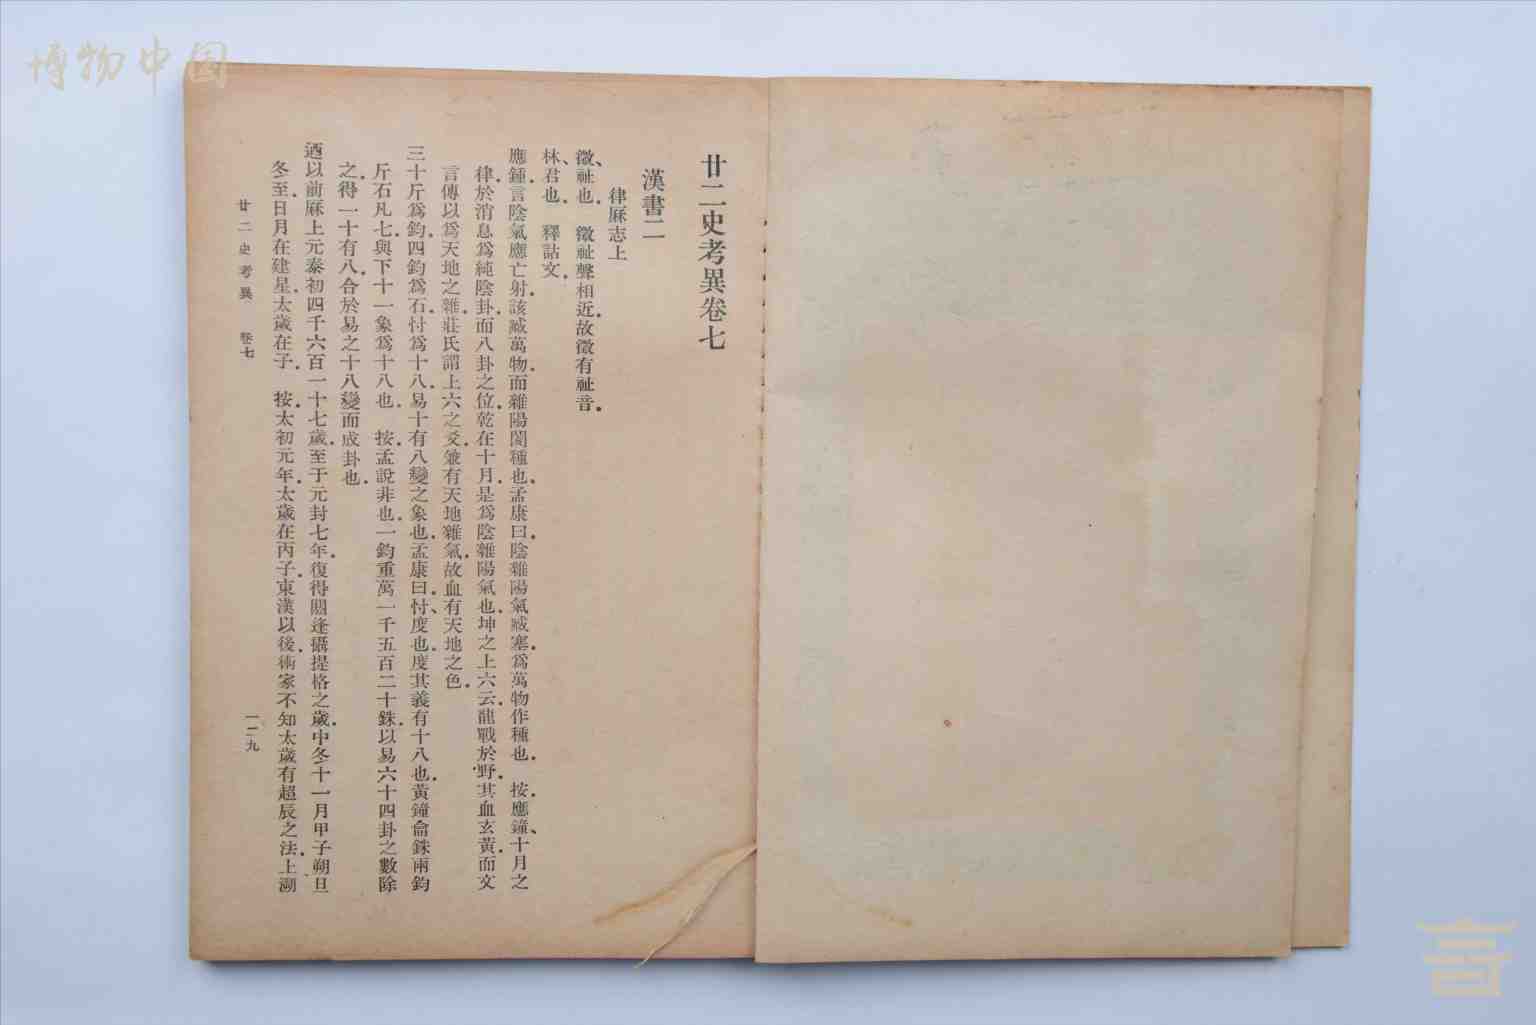 博物中国
廿二史考異卷七
漢書二
律厤志上
徵、祉也。徵祉聲相近。故徵有祉音。
林、君也。釋詁文。
應鍾。言陰氣應亡射。該臧萬物。而雜陽閡種也。孟康曰。陰雜陽氣臧塞。爲萬物作種也。按。應鐘、十月之
律。於消息爲純陰卦。而八卦之位。乾在十月。是爲陰雜陽氣也。坤之上六云。龍戰於野。其血玄黃。而文
言傳以爲天地之雜。莊氏謂上六之爻。兼有天地雜氣。故血有天地之色。
三十斤爲鈞。四鈞爲石。忖爲十八。易十有八變之象也。孟康曰。忖、度也。度其義有十八也。黃鐘龠銖兩鈞
斤石凡七。與下十一象爲十八也。按。孟說非也。一鈞重萬一千五百二十銖。以易六十四卦之數除
之。得一十有八。合於易之十八變而成卦也。
迺以前厤上元泰初四千六百一十七歲。至于元封七年。復得閼逢攝提格之歲。中冬十一月甲子朔旦
冬至。日月在建星。太歲在子。按。太初元年。太歲在丙子。東漢以後。術家不知太歲有超辰之法。上溯
廿二史考異 卷七
一二九